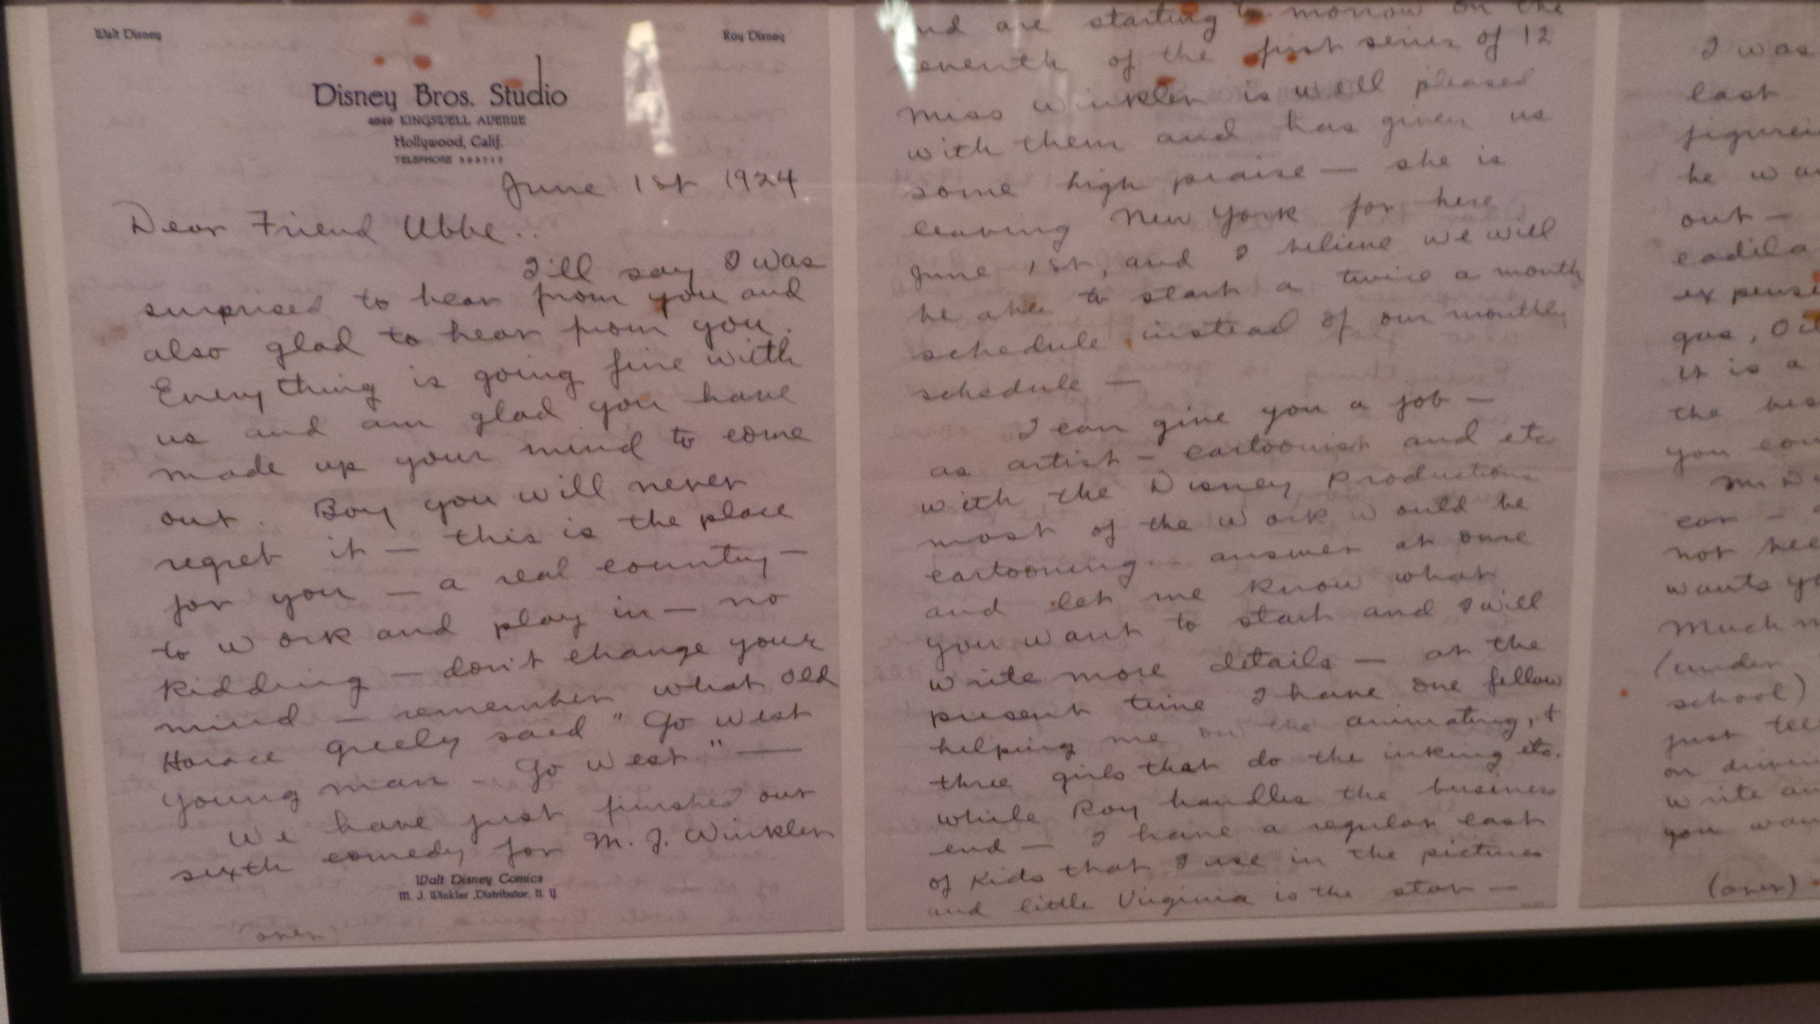 Walt Disney
Roy Disney
Disney Bros. Studio
4649 KINGSWELL AVENUE
Hollywood, Calif.
TELEPHONE
June 1st 1924
Dear Friend Ubbe..
I'll say I was
surprised to hear from you and
also glad to hear from you.
Everything is going fine with
us and am glad you have
made up your mind to come
out. Boy you will never
regret it — this is the place
for you — a real country —
to work and play in — no
kidding — don't change your
mind — remember what old
Horace Greely said "Go west
young man - Go west" —
We have just finished our
sixth comedy for M. J. Winkler
Walt Disney Comics
M. J. Winkler, Distributor, N. Y.
over
and are starting to morrow on the
seventh of the first series of 12
Miss Winkler is well pleased
with them and has given us
some high praise — she is
leaving New York for here
June 1st, and I believe we will
be able to start a twice a month
schedule instead of our monthly
schedule —
I can give you a job —
as artist - cartoonist and etc
with the Disney Productions
most of the work would be
cartooning. answer at once
and let me know what
you want to start and I will
write more details — at the
present time I have one fellow
helping me on the animating, +
three girls that do the inking etc.
while Roy handles the business
end — I have a regular cast
of Kids that I use in the pictures
and little Virginia is the star —
I was
last
he
out —
gas,
it is a
the
you
not
wants
Much
(under
school)
just
on
write
you
(over)